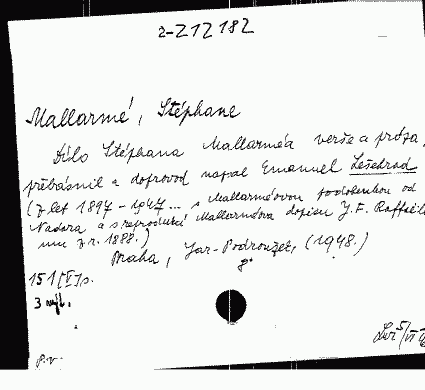 2-Z12182
Mallarmé, Stéphane
Dílo Stéphana Mallarméa verše a próza,
přebásnil a doprovod napsal Emanuel Lešehrad
(Z let 1897-1947... s Mallarméovou podobenkou od
Nadara a s reprodukcí Mallarméova dopisu J. F. Raffaëlli
mu z r. 1888.)
Praha, Jar. Podroužek, (1948.)
8°
151 [V] s.
3 
P.V.